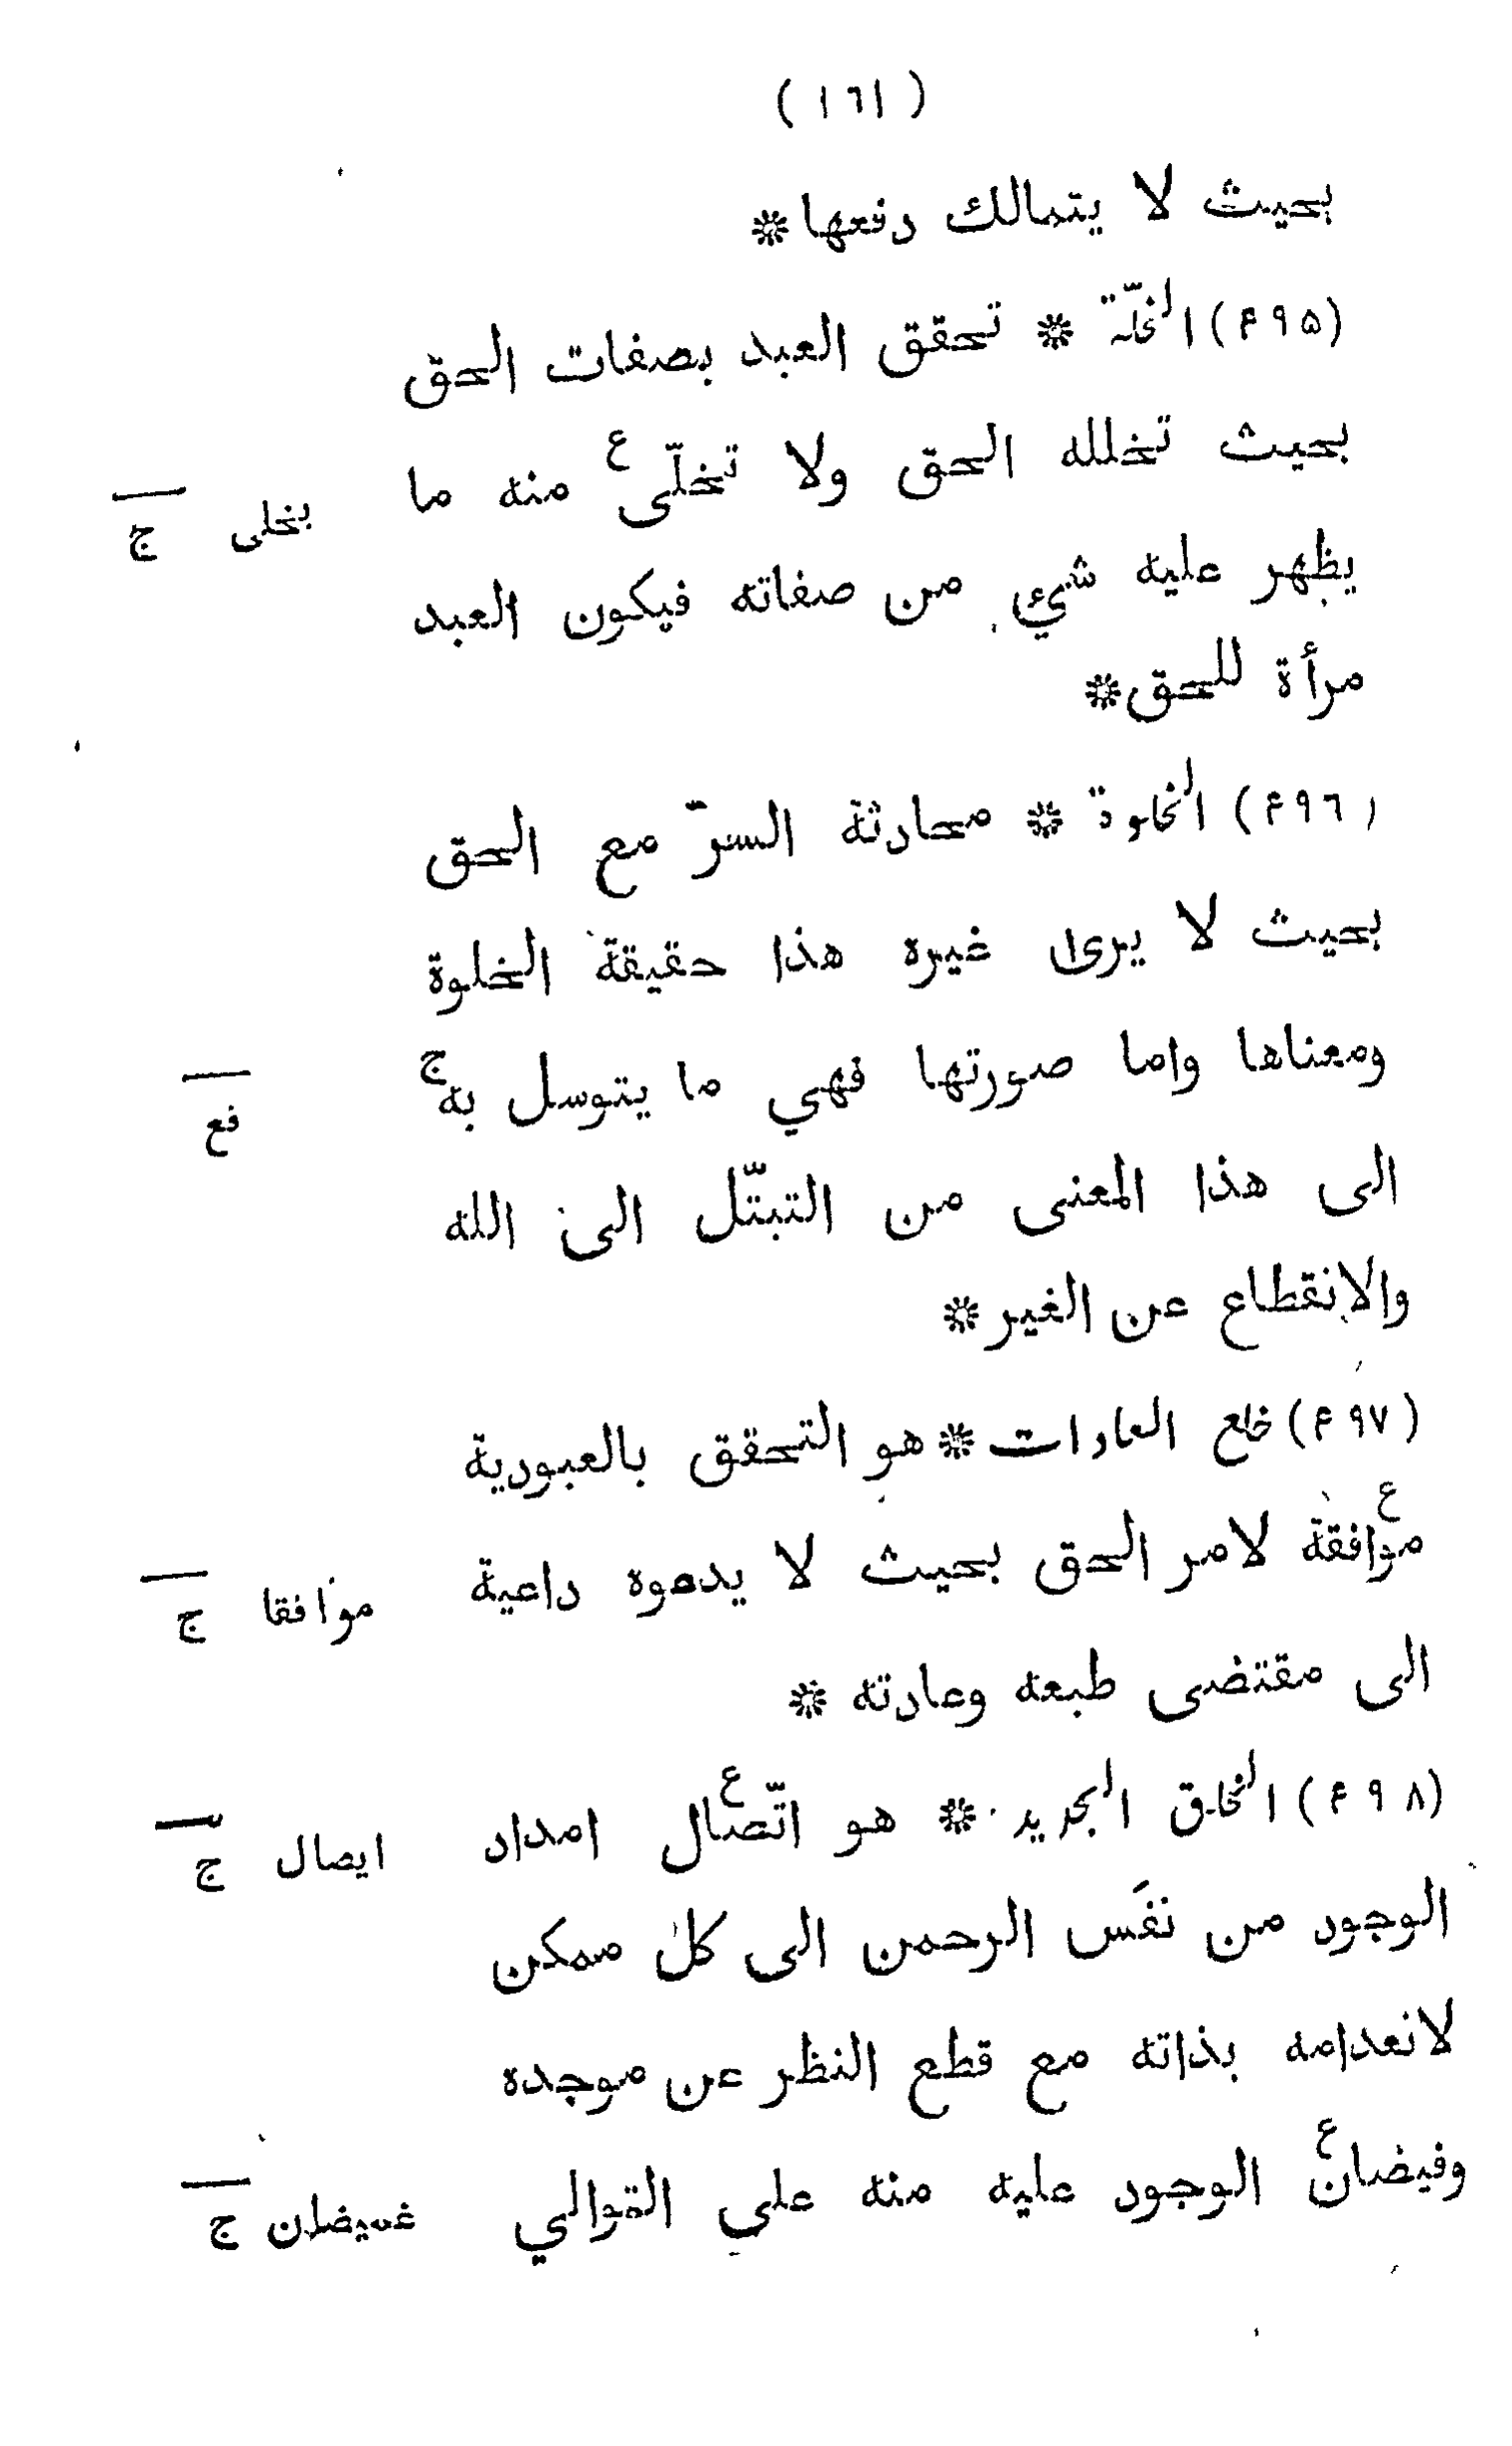 (١٦١)
بحيث لا يتمالك دفعها *
(٤٩٥) الخلّة * تحقق العبد بصفات الحق
بحيث تخلله الحق ولا تخلّى ع منه ما يخلى ج
يظهر عليه شيء من صفاته فيكون العبد
مرأة للحق *
(٤٩٦) الخلوة * محادثة السرّ مع الحق
بحيث لا يرى غيره هذا حقيقة الخلوة
ومعناها واما صورتها فهي ما يتوسل به ج فع
الى هذا المعنى من التبتّل الى الله
والانقطاع عن الغير *
(٤٩٧) خلع العادات * هو التحقق بالعبودية
موافقة ع لامر الحق بحيث لا يدعوه داعية موافقا ج
الى مقتضى طبعه وعادته *
(٤٩٨) الخلق الجديد * هو اتّصال ع امداد ايصال ج
الوجود من نفَس الرحمن الى كل ممكن
لانعدامه بذاته مع قطع النظر عن موجده
وفيضان ع الوجود عليه منه على التوالي ج